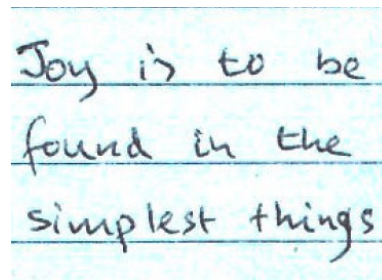 Joy is to be
found in the
simplest things